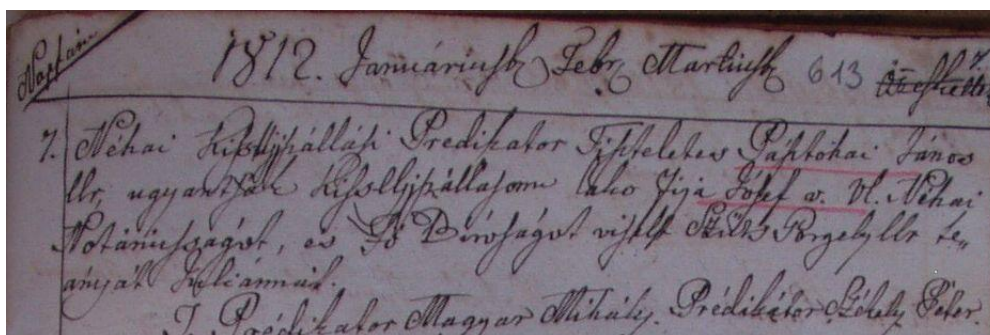 Naptán
1812. Januáriusb, Febr. Martiusb, 613
7. Néhai Kis Ujszállási Predikator Tiszteletes Pásztohai János
Ur, ugyantsak Kis Ujszálláson lako Fija Josef v. Vl. Néhai
Notáriusságot, es Fő Biróságot viselt Szűts Gergely Ur le,,
ányát Juliánnát.
T. Prédikator Magyar Mihály. Prédikátor Székely Péter